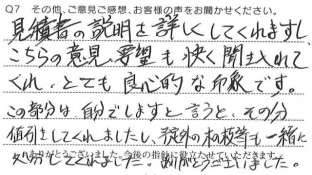 Q7 その他、ご意見ご感想、お客様の声をお聞かせください。
見積書の説明を詳しくしてくれますし、
こちらの意見、要望も快く聞き入れて
くれ、とても良心的な印象です。
この部分は、自分でしますと言うと、その分
値引をしてくれましたし、予定外の木の枝等も一緒に
処分してくれました。ありがとうございました。
ありがとうございました。今後の指針に役立たせていただきます。